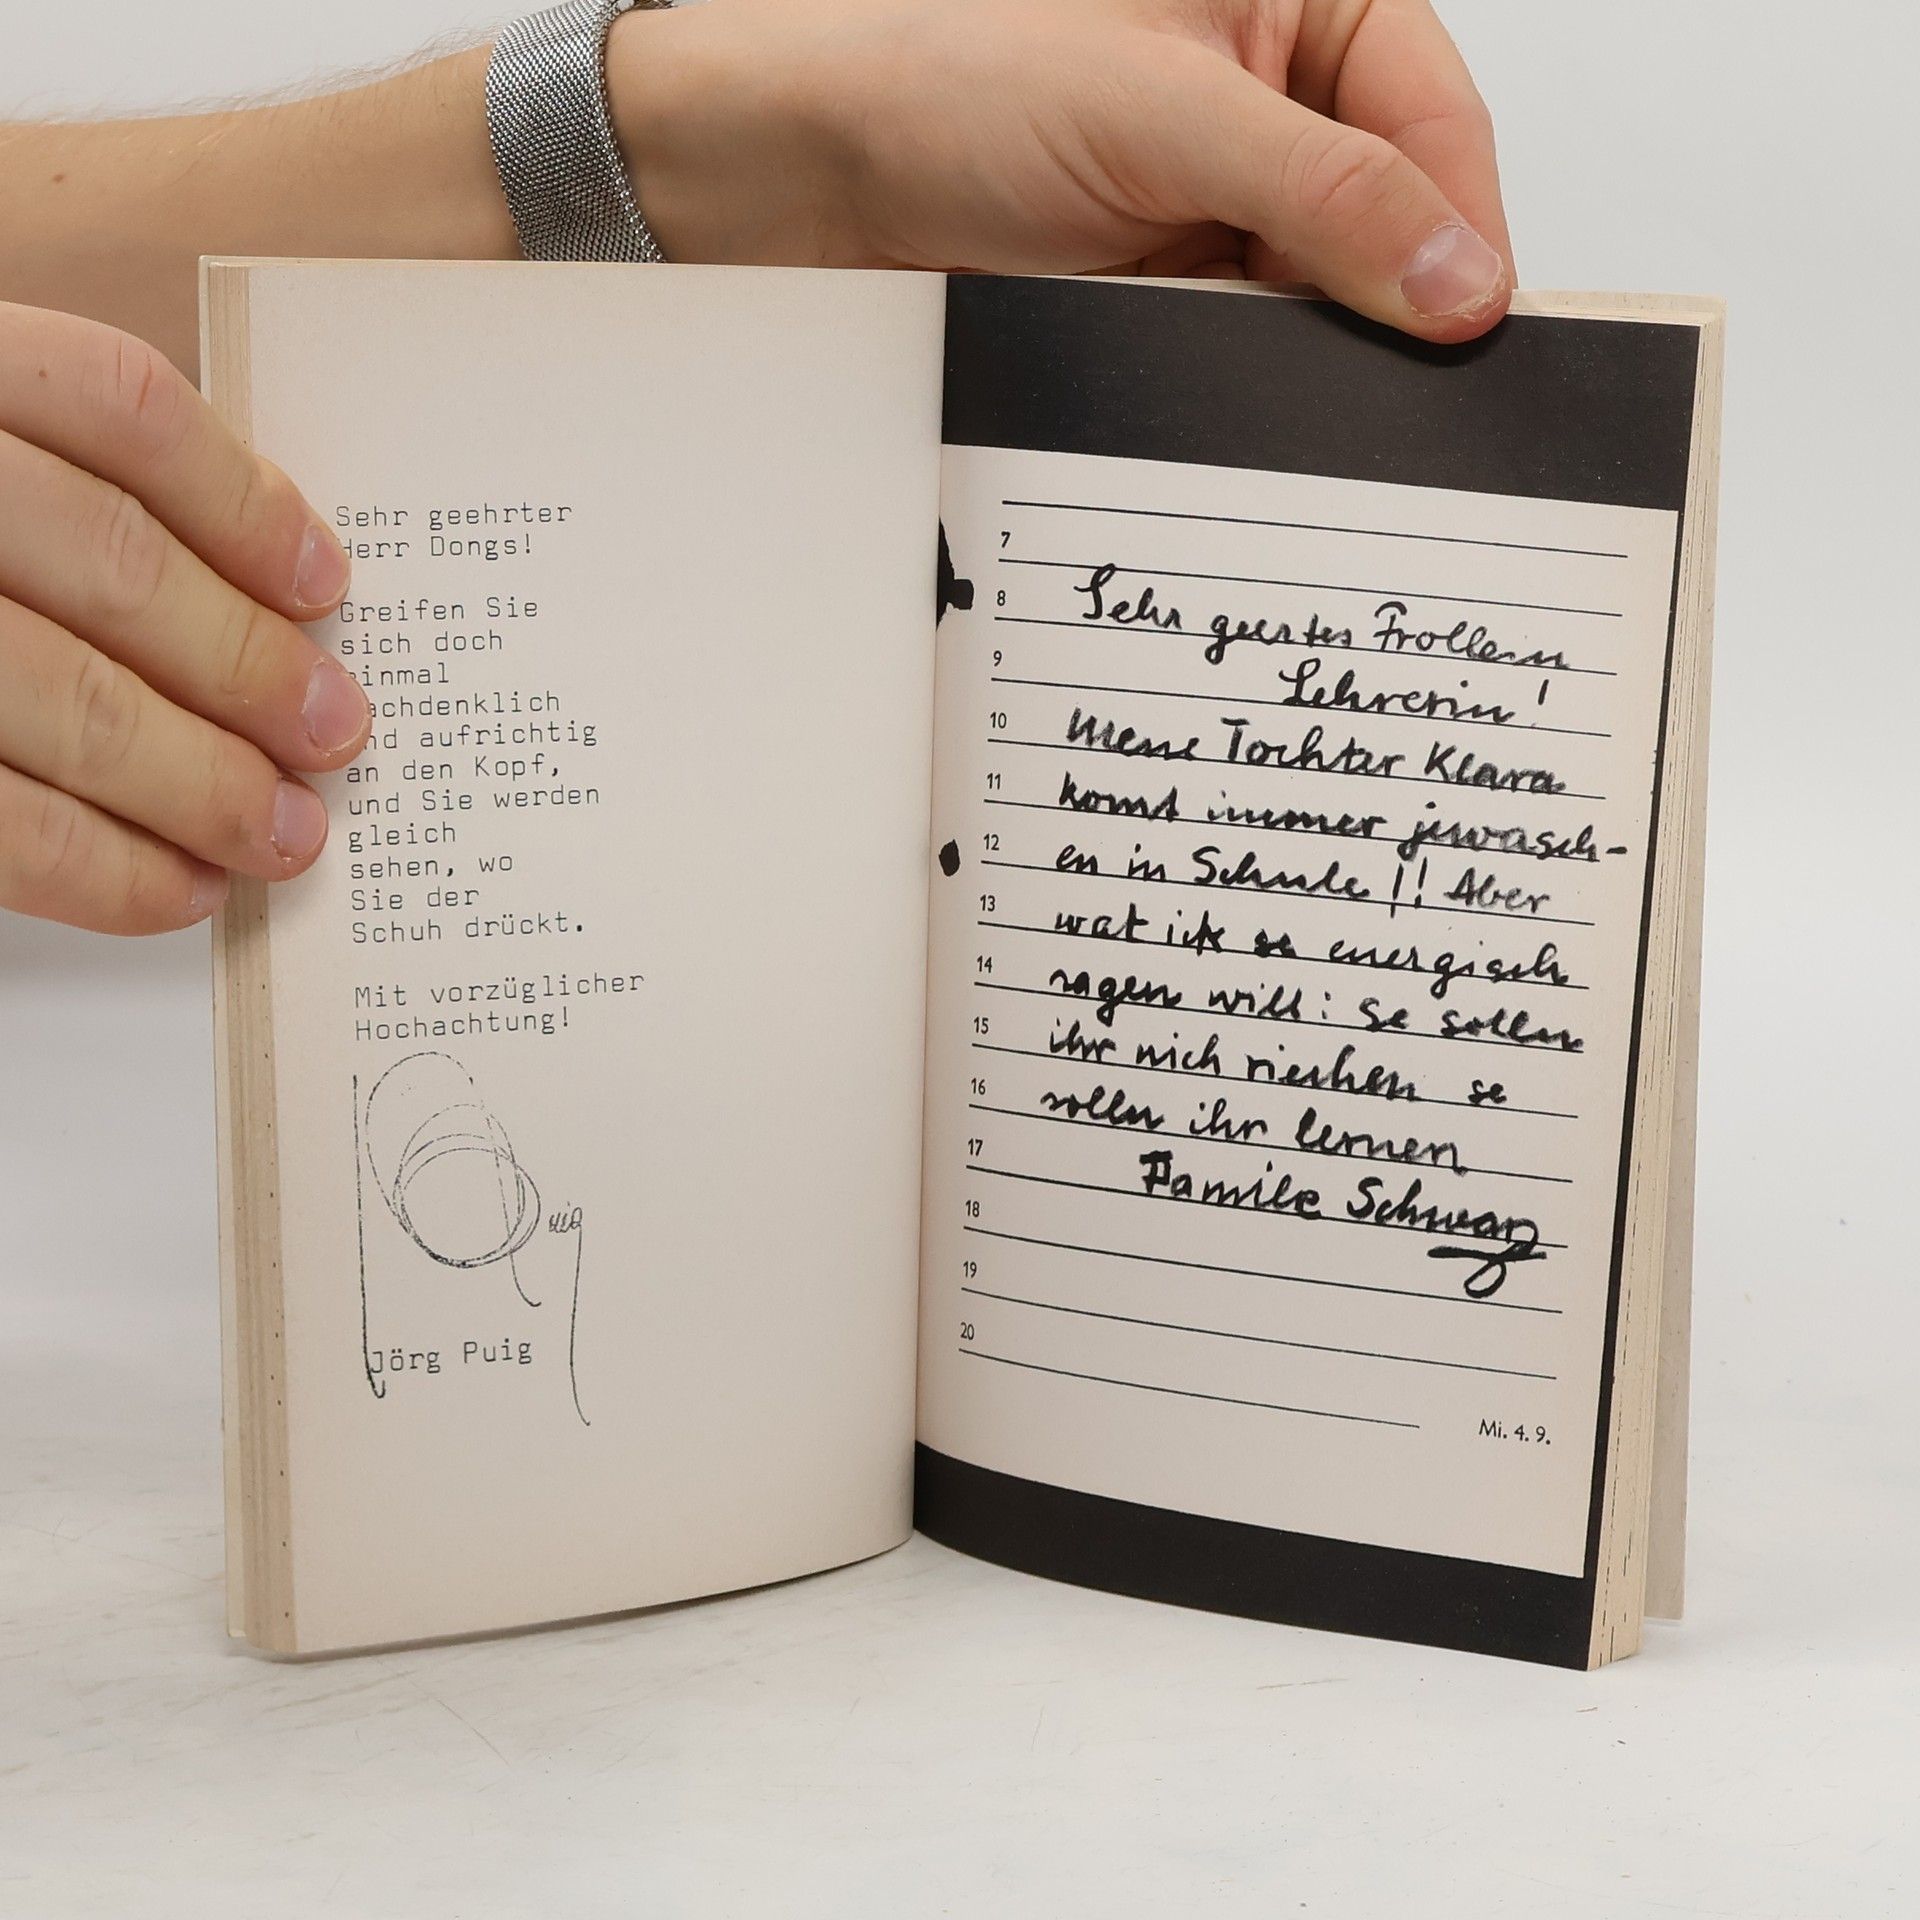 Sehr geehrter
Herr Dongs!
Greifen Sie
sich doch
einmal
nachdenklich
und aufrichtig
an den Kopf,
und Sie werden
gleich
sehen, wo
Sie der
Schuh drückt.
Mit vorzüglicher
Hochachtung!
Jörg Puig
7
8 Sehr geertes Frollein
9 Lehrerin!
10 Meine Tochter Klara
11 komt immer jewasch-
12 en in Schule!! Aber
13 wat ick se energisch
14 sagen will: Se solln
15 ihr nich riechen se
16 solln ihr lernen
17 Familie Schwarz
18
19
20
Mi. 4. 9.